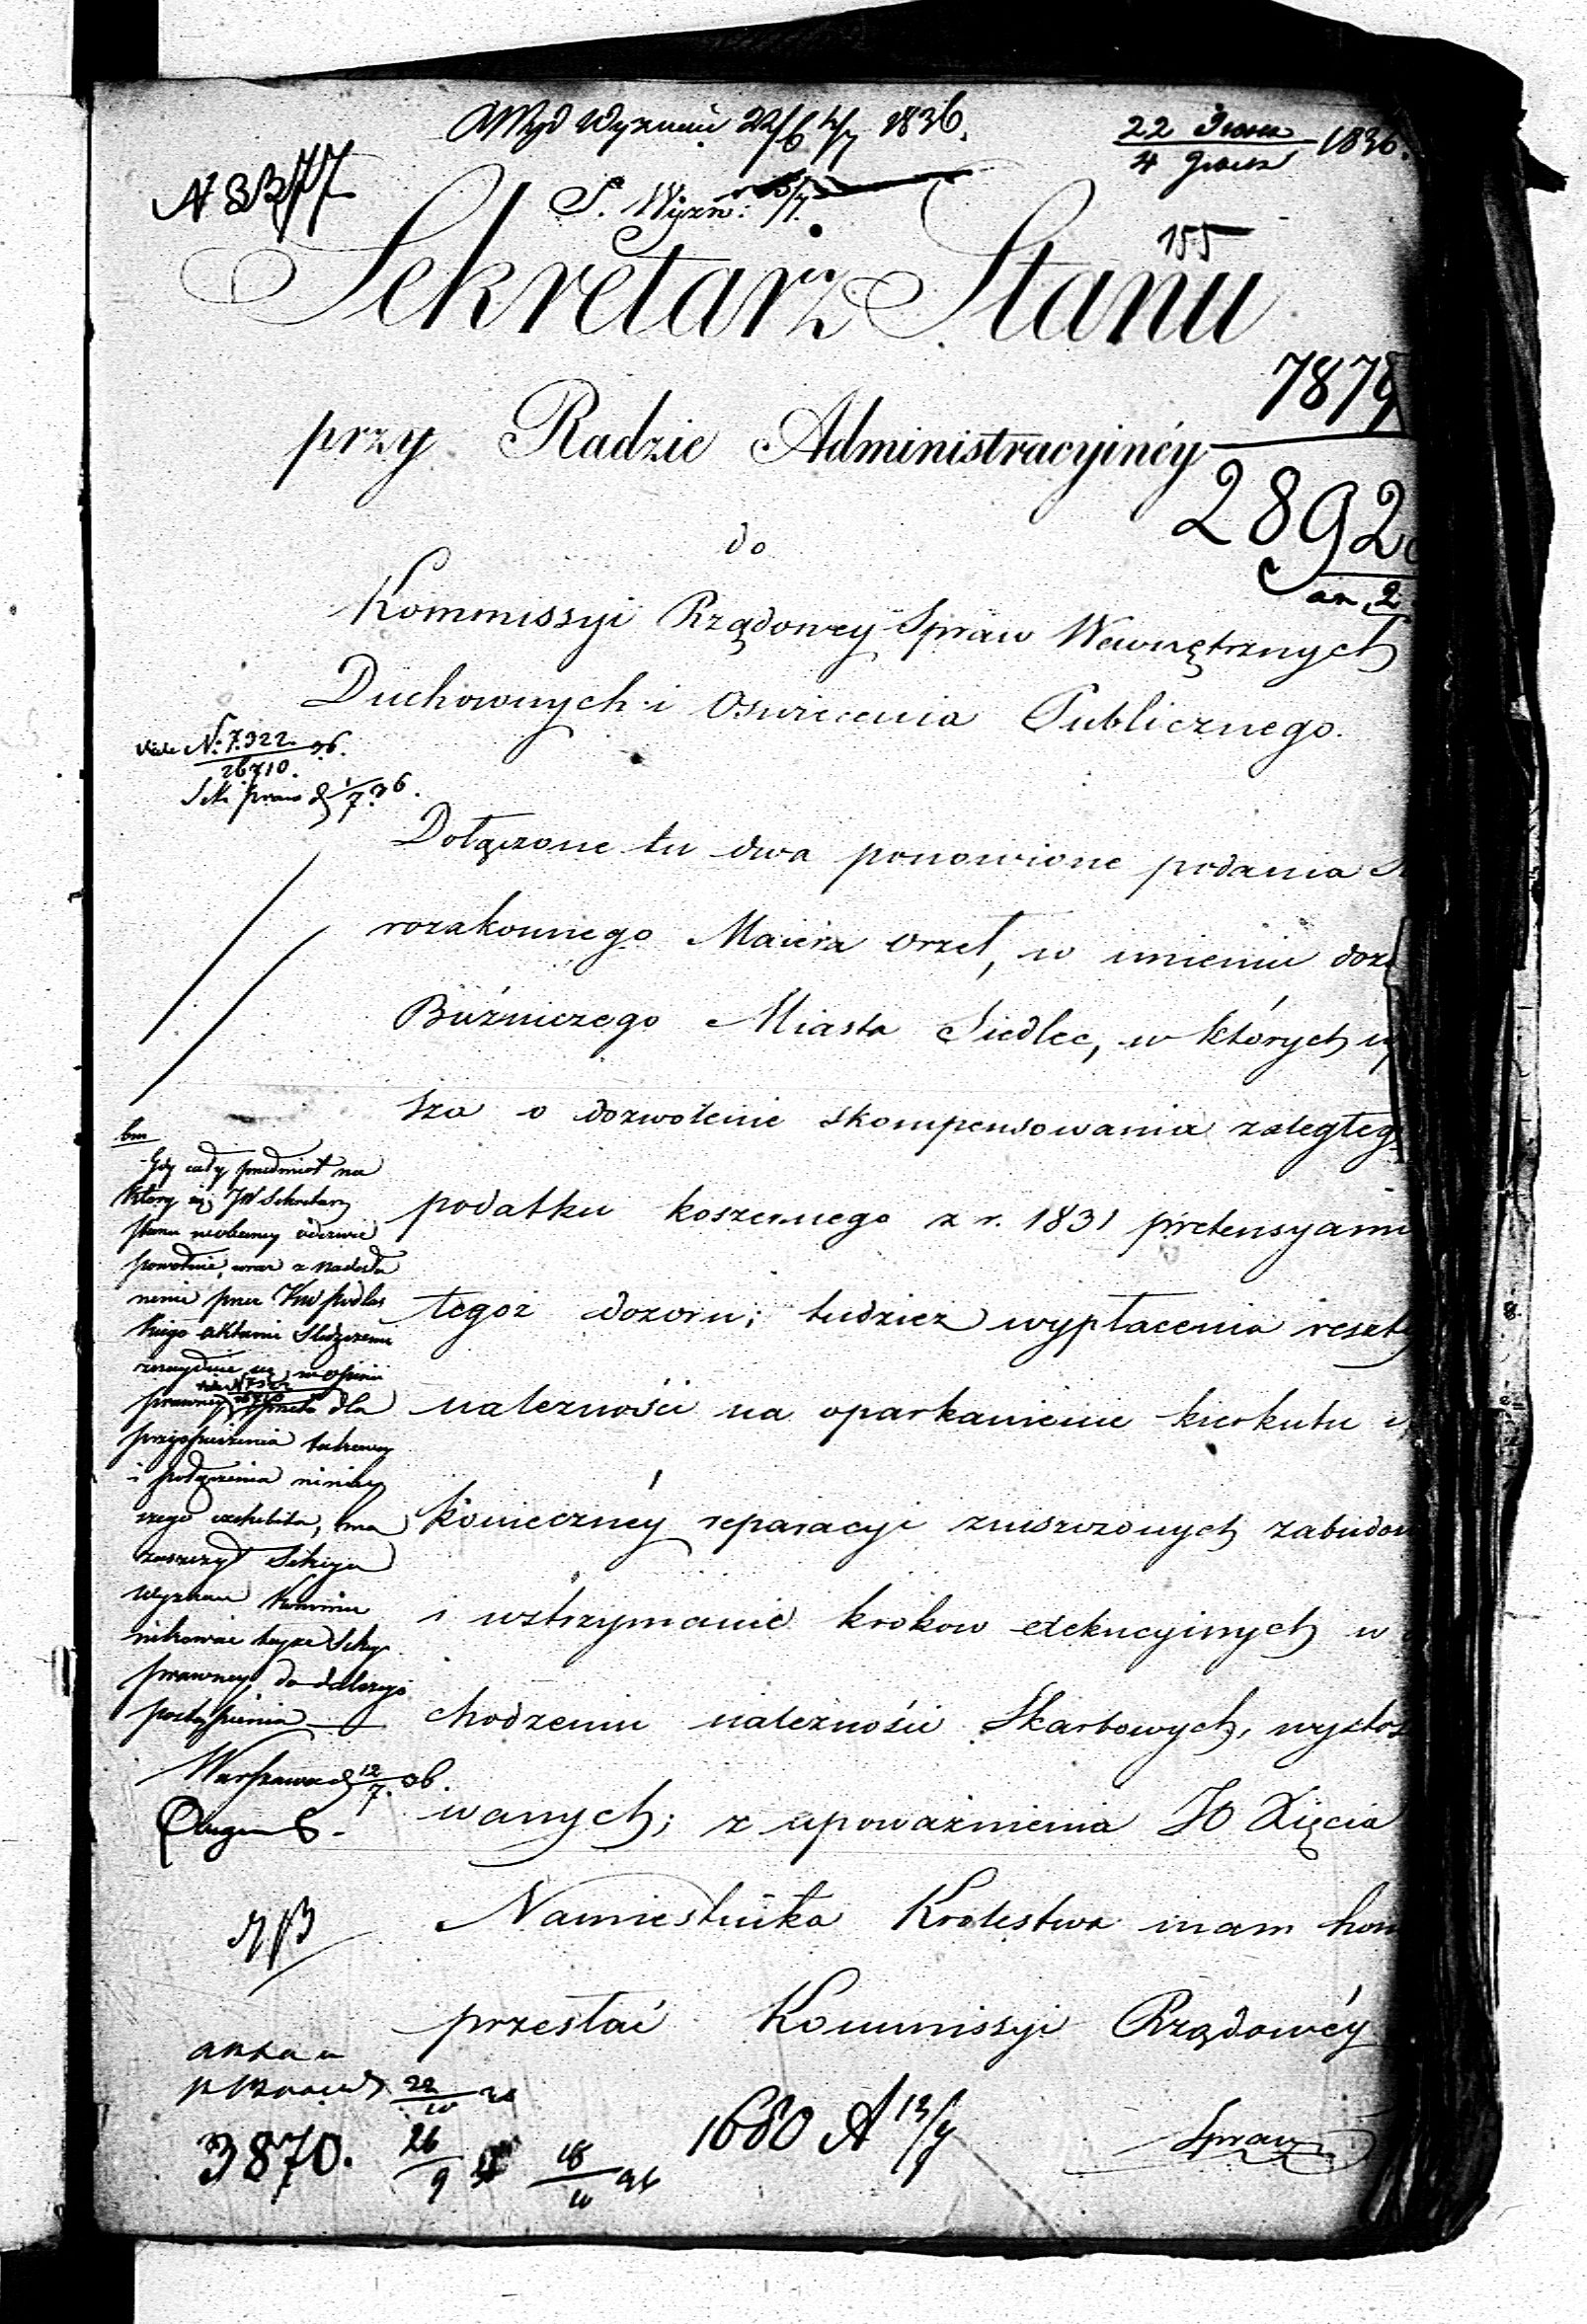 Wyd Wyznań 22/6 4/7 1836.
22 Czerw / 4 1836.
N 3377
S. Wyzn: 5/7.
155
Sekretarz Stanu
7879
przy Radzie Administracyinéy
2892
an. 2
do
Kommissyi Rządowey Spraw Wewnętrznych
Duchownych i Oswiecenia Publicznego.
vide N. 7.922 / 26710. 36.
Sek: praw d 1/7. 36.
Dołączone tu dwa ponowione podania
rozakonnego Maiera Orzeł, w imieniu
Bóźniczego Miasta Siedlec, w których
sza o dozwolenie skompensowania zaległeg
podatku koszernego z r. 1831 pretensyami
tegoż dozoru; tudzież wypłacenia reszty
należności na oparkanienie kierkutu
koniecznéy reparacyi zniszczonych zabudow
i wstrzymanie krokow exekucyinych w
chodzeniu należności Skarbowych, wystos
wanych; z upoważnienia JO Xięcia
Namiestnika Krolestwa mam hon
przesłać Kommissyi Rządowéy
Spraw
bm
Gdy cały przedmiot na
który się JW Sekretarz
Stanu w odezwie
powołuie, wraz z nadesła
nemi przez Kw podlas
kiego aktami
znayduie się w opinii
prawney dla
przyspieszenia
i połączenia niniey
szego exhibitu,
zaszczyt Sekcya
Wyznań kommu
nikować teyże Sekcyi
prawney do dalszego
postąpienia
Warszawa d 12/7. 36.
3870.
26/9
18/10 36
1680 A 13/7